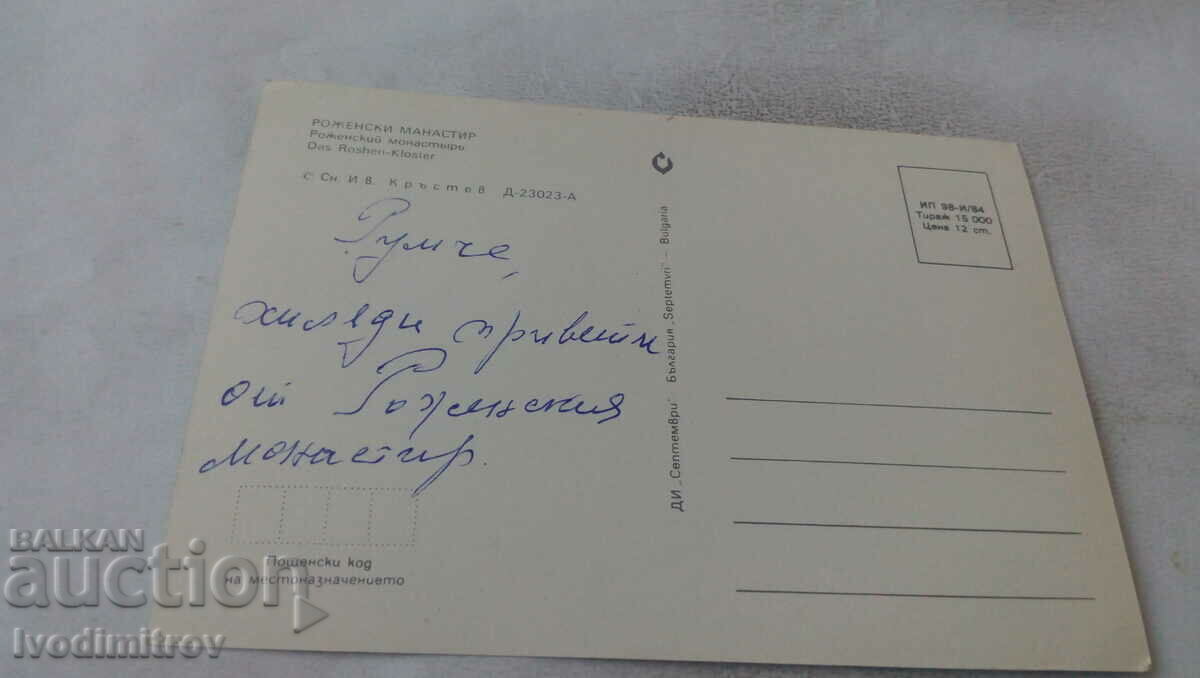 РОЖЕНСКИ МАНАСТИР
Роженский монастырь
Das Roshen-Kloster
© Сн. Ив. Кръстев Д-23023-А
Румче,
хиляди привети
от Роженския
монастир.
Пощенски код
на местоназначението
ДИ „Септември" България „Septemvri" — Bulgaria
ИП 98-И/84
Тираж 15 000
Цена 12 ст.
BALKAN
auction
Ivodimitrov